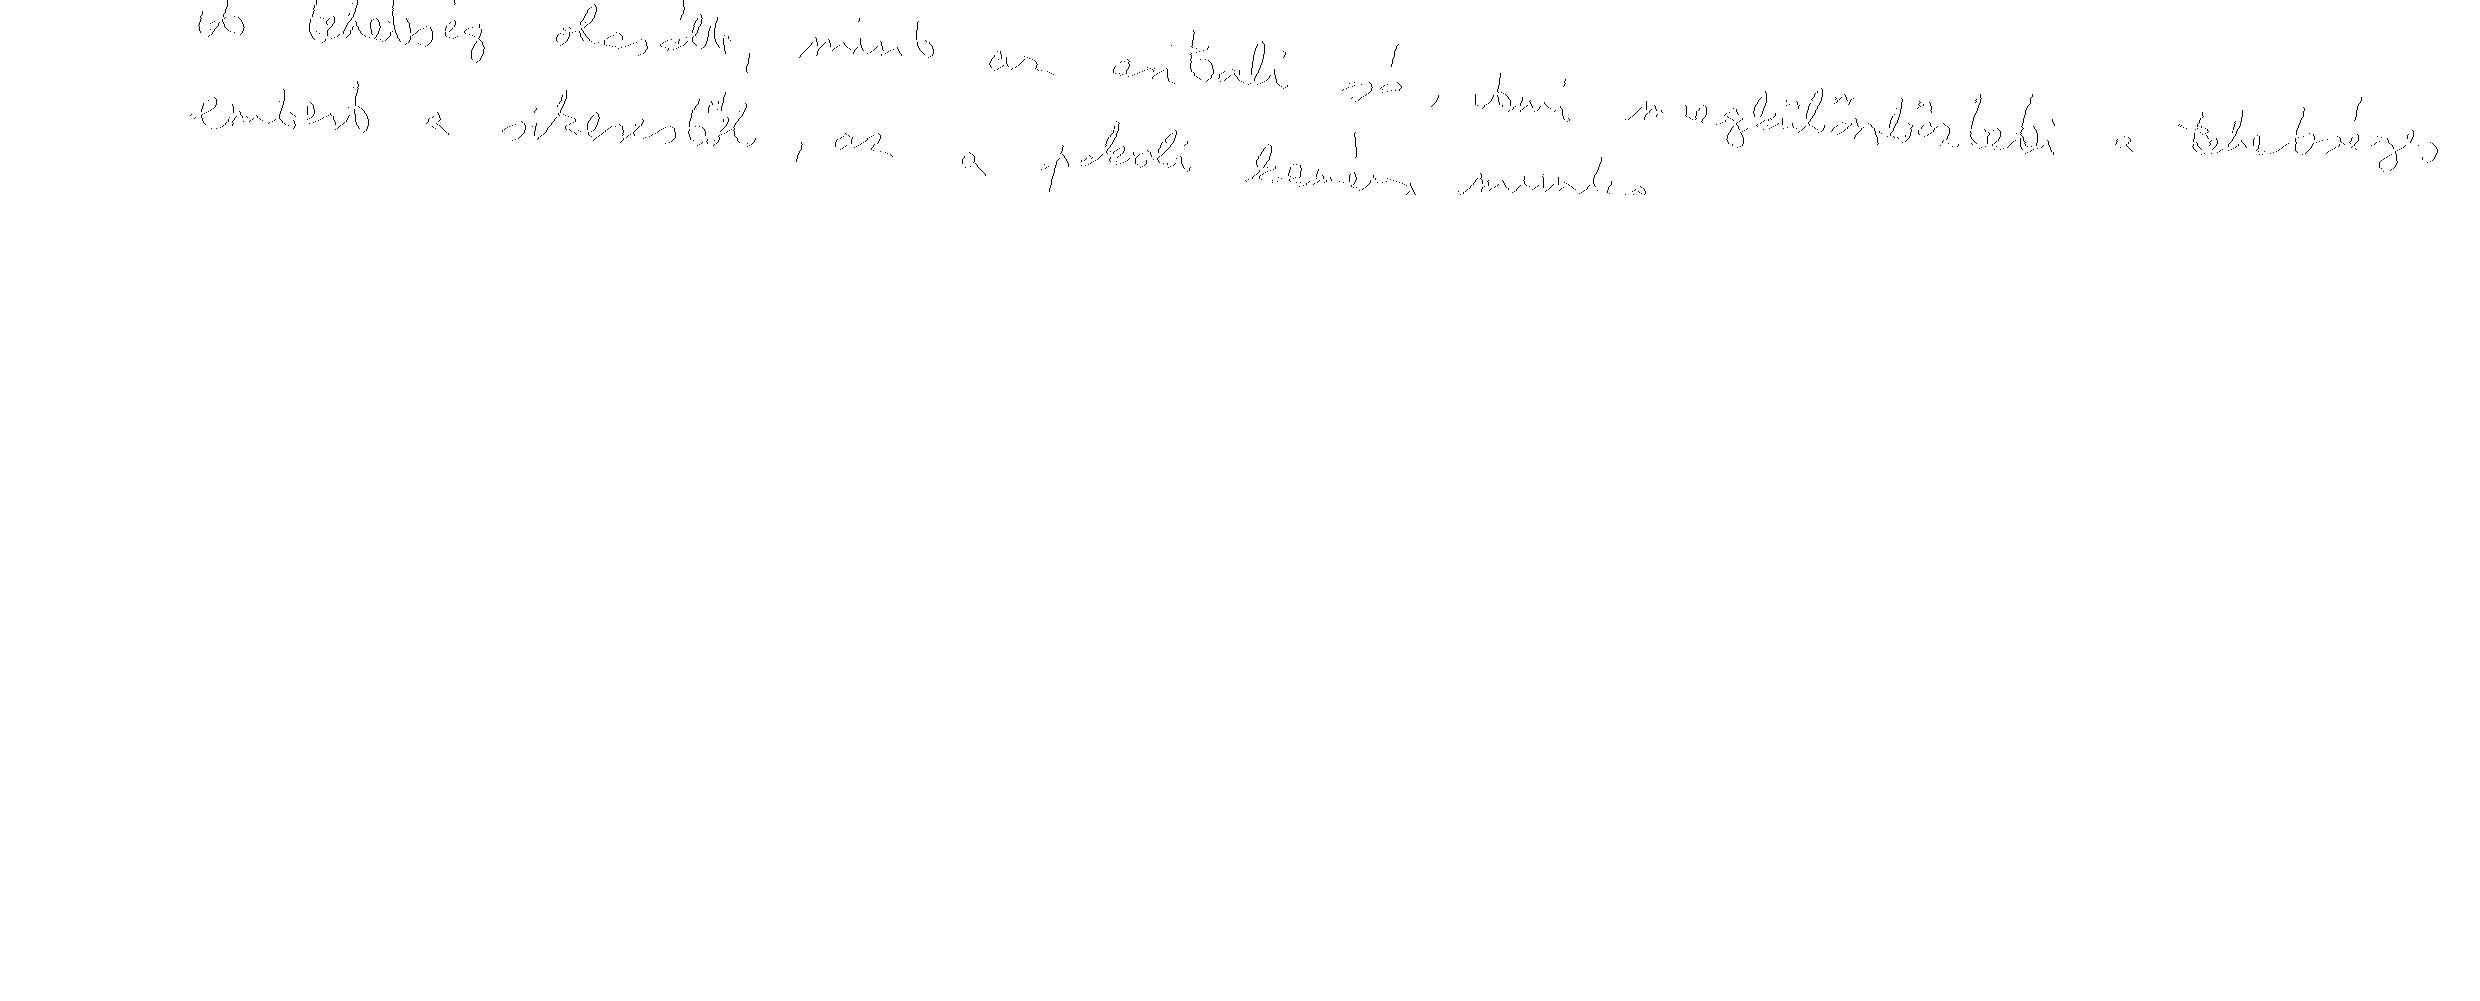 A tehetség olcsóbb, mint az asztali só, ami megkülönbözteti a tehetséges
embert a sikerestől, az a pokoli kemény munka